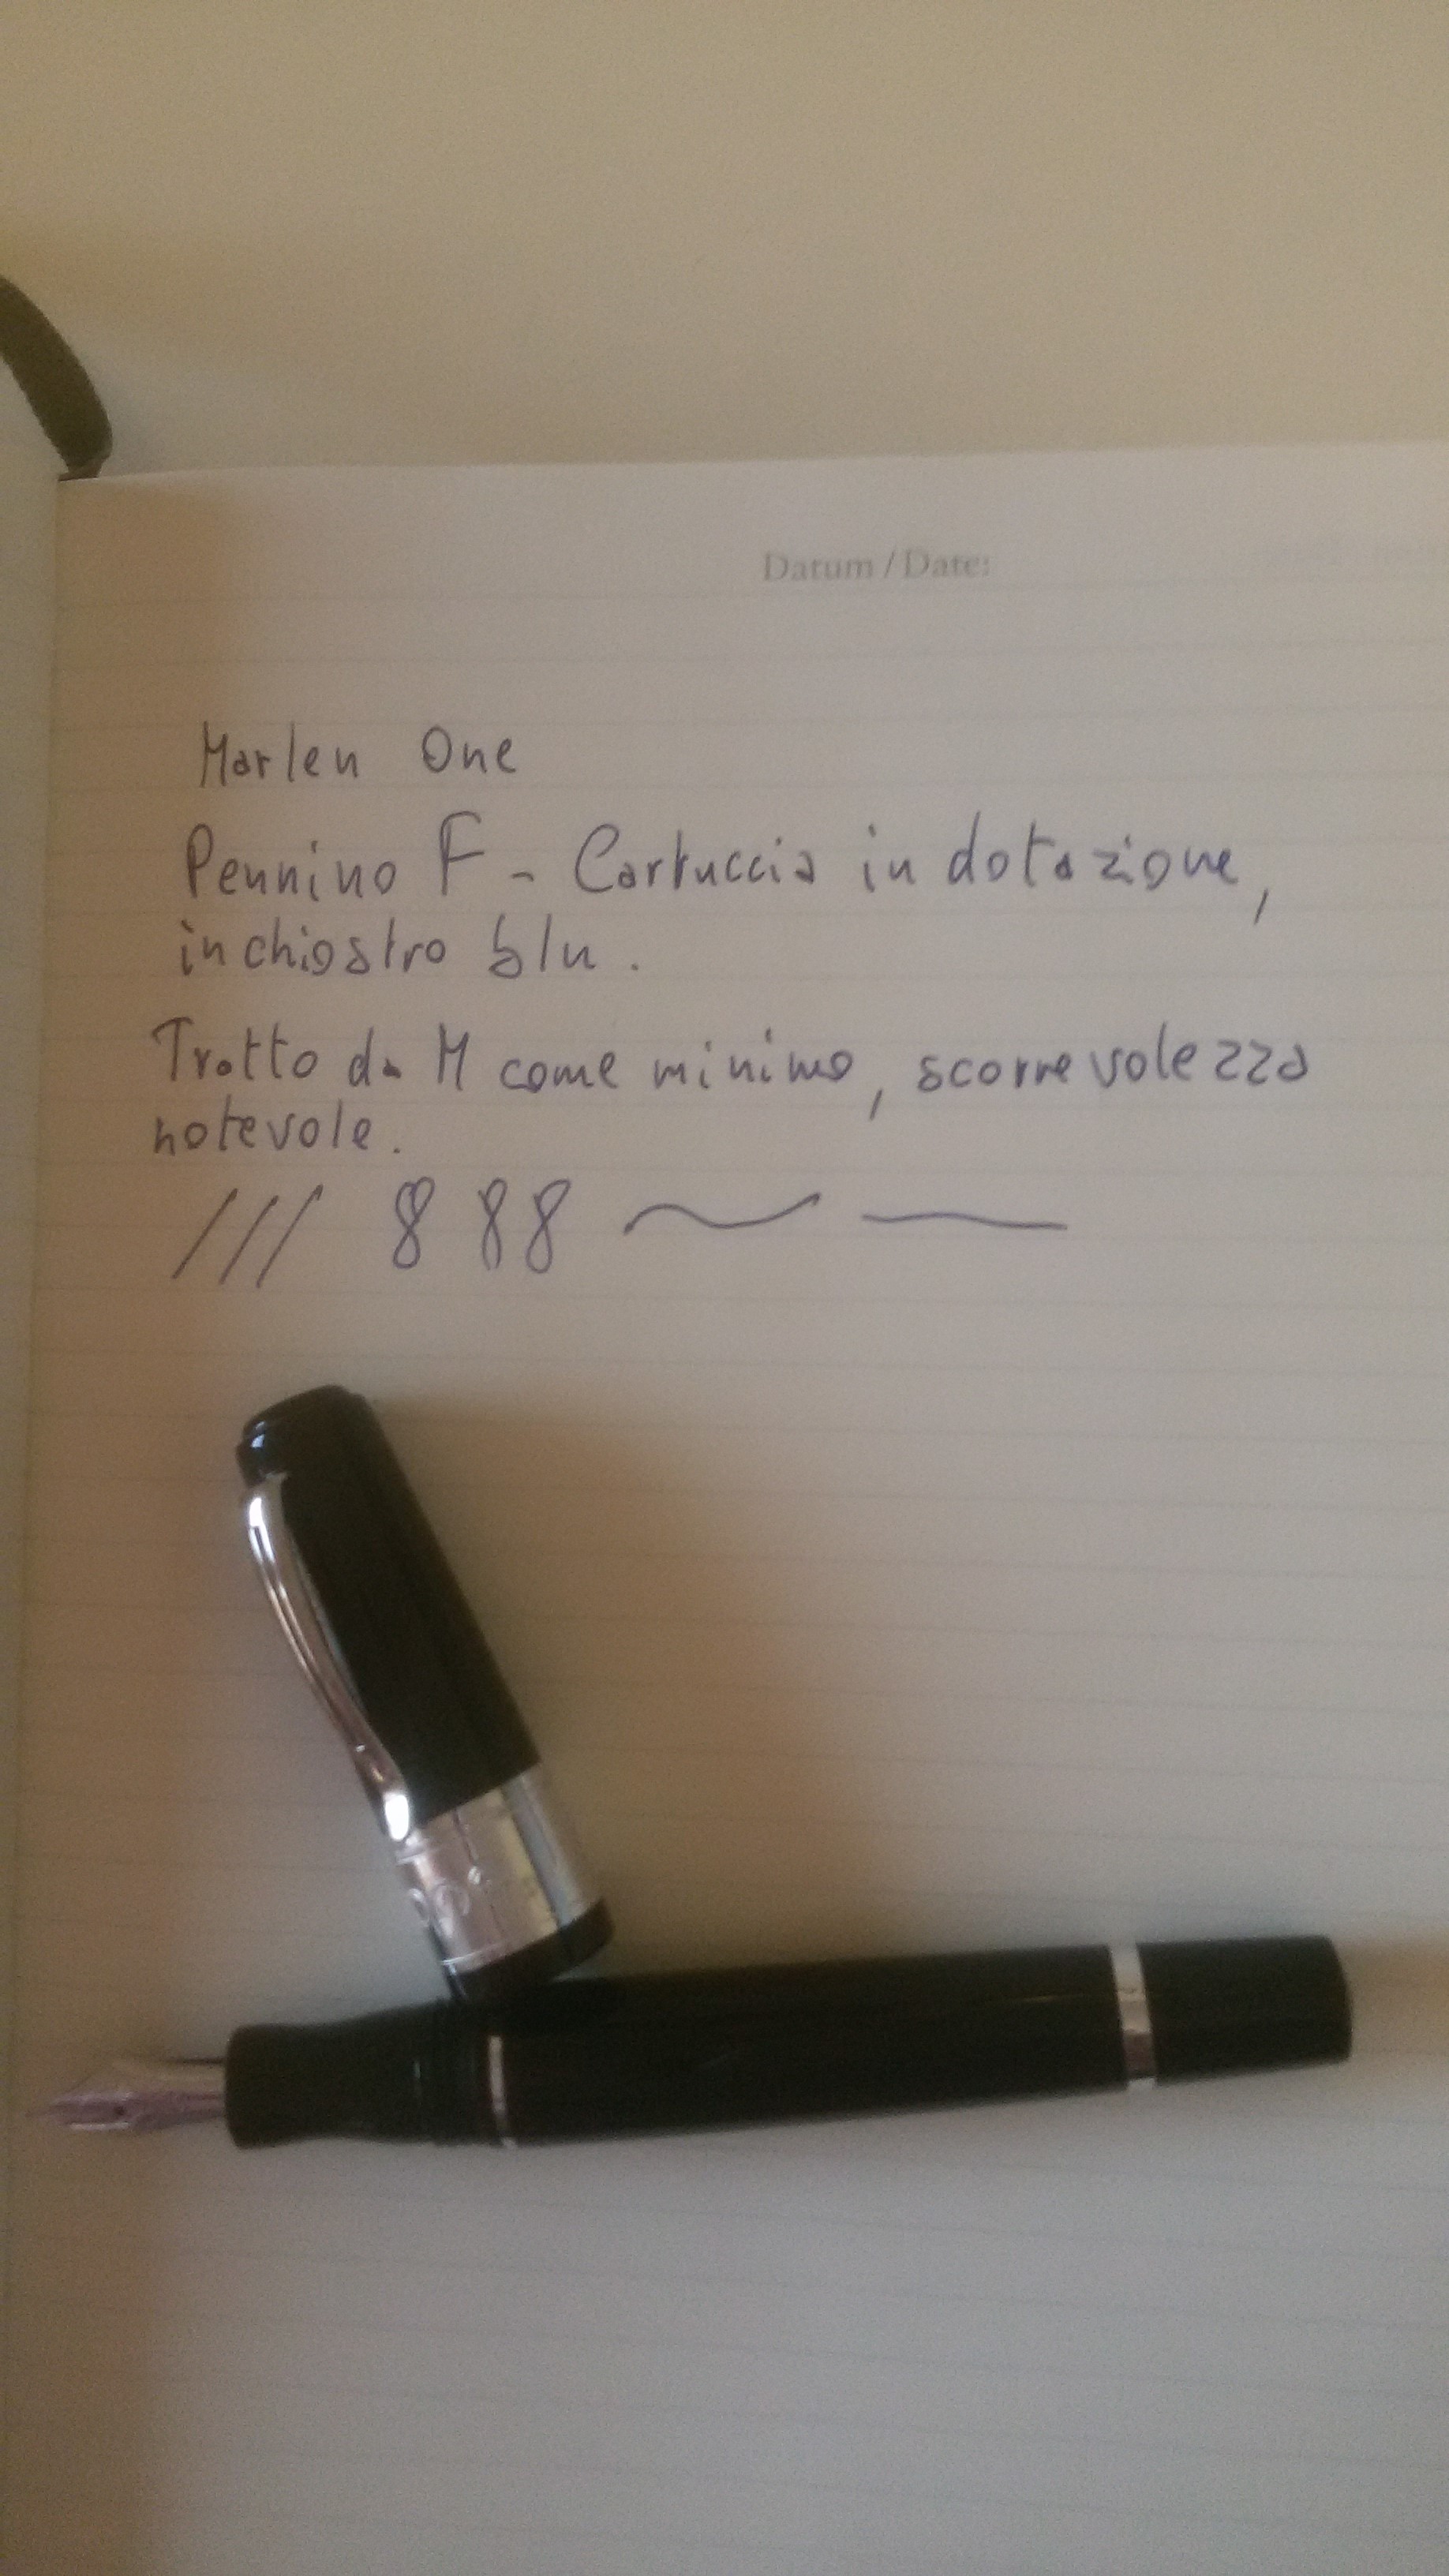 Datum / Date:
Marlen One
Pennino F - Cartuccia in dotazione,
inchiostro blu.
Tratto da M come minimo, scorrevolezza
notevole.
/// 8 88